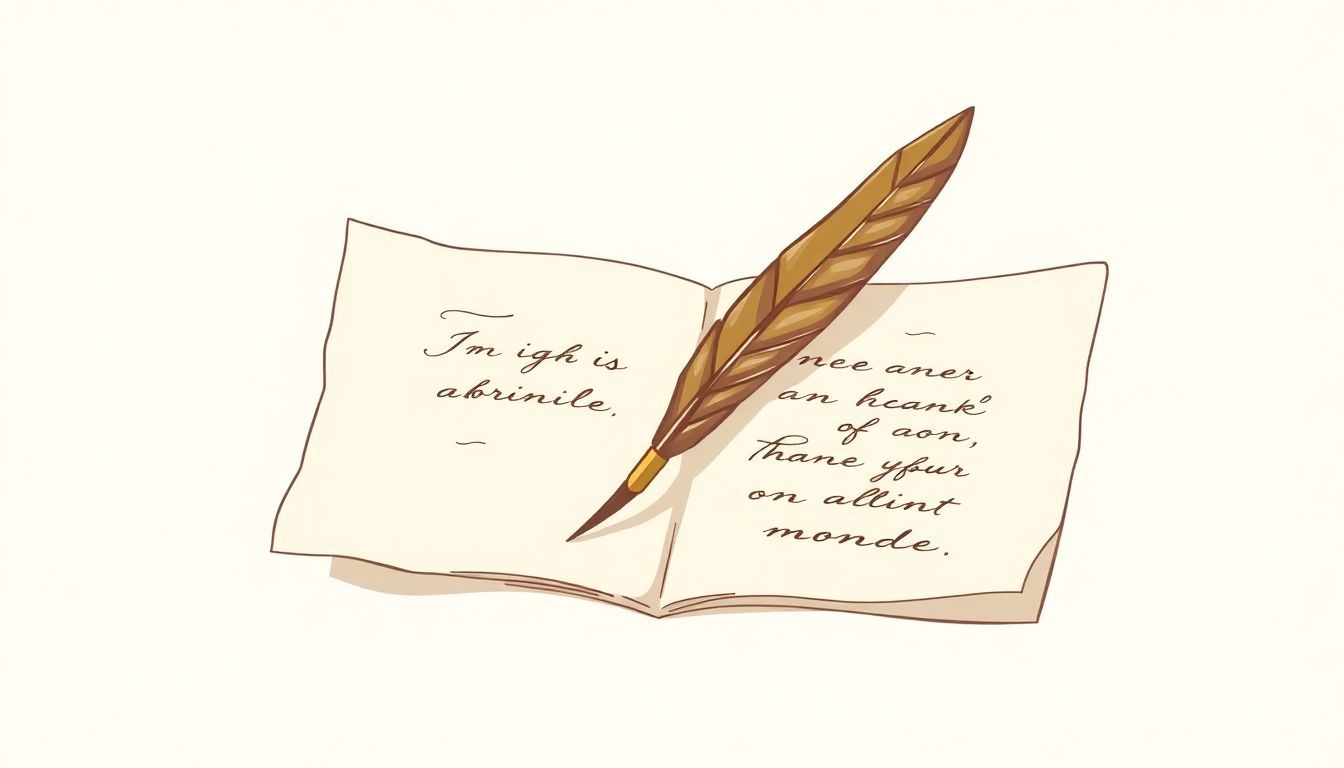 Im igh is
abrinile.
nee aner
an hcank
of aon,
Thane yfour
on allint
monde.